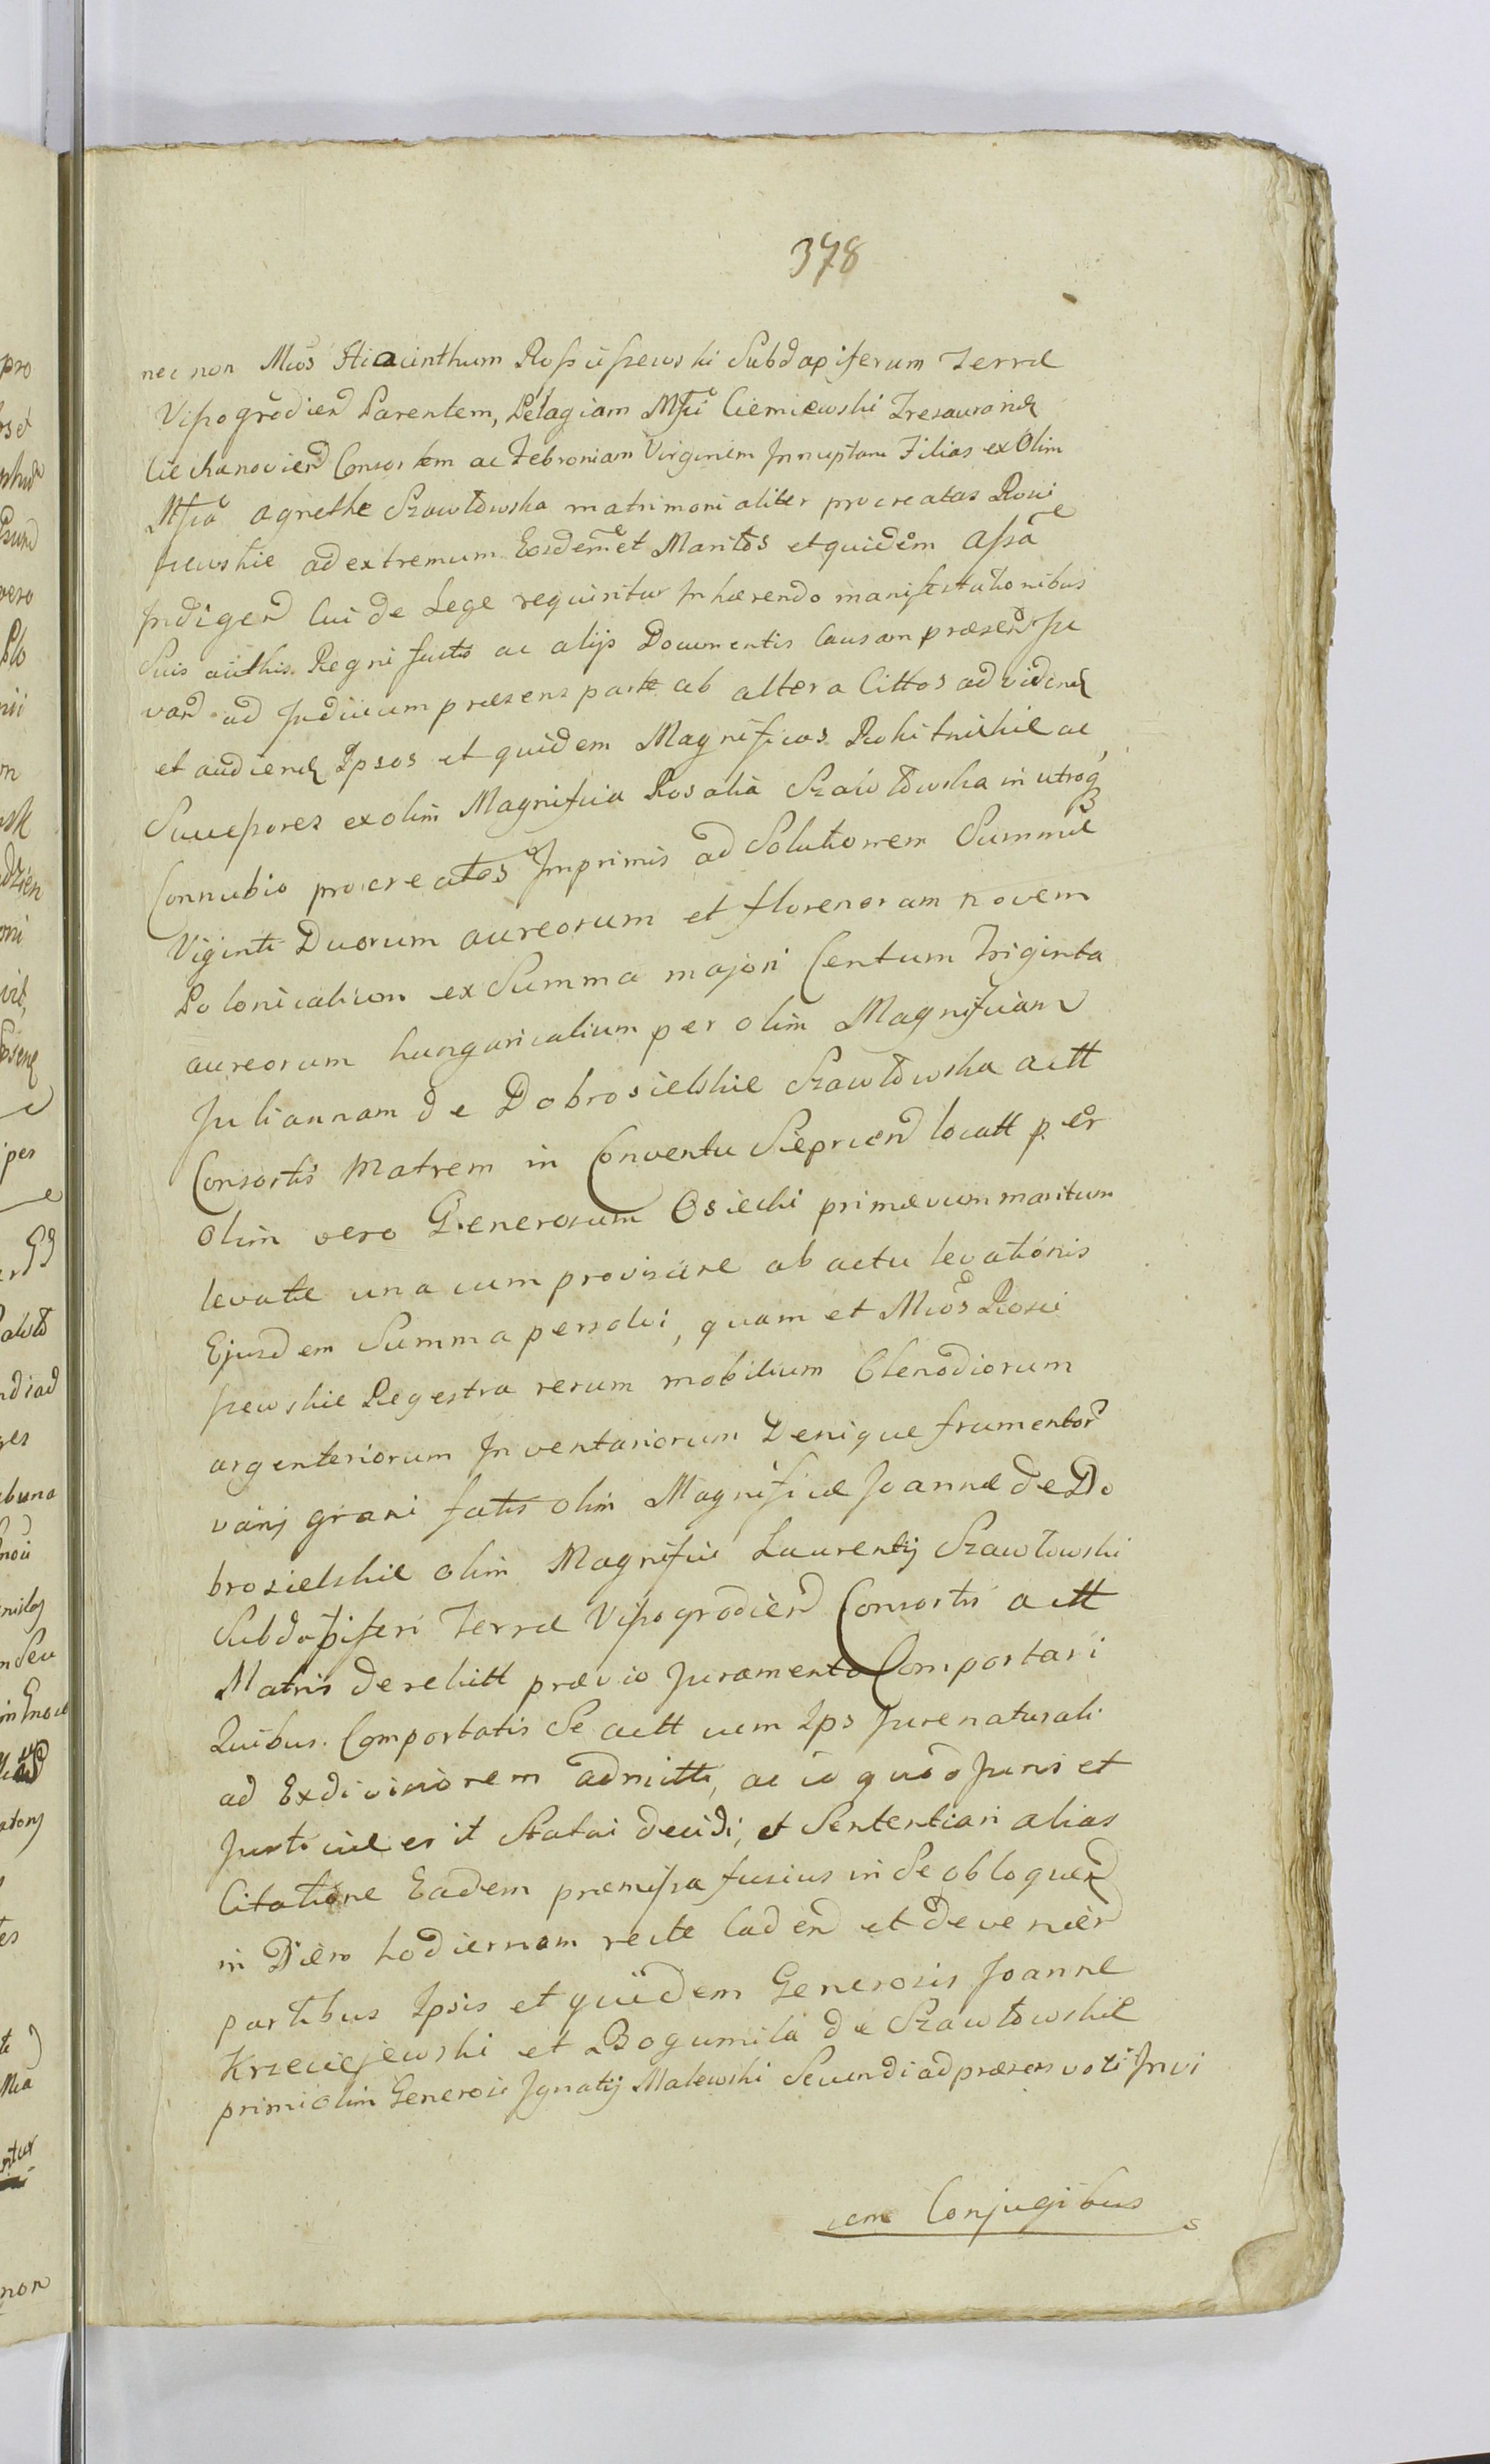 378
nec non Mcos Hiacinthum Rosciszewski Subdapiferum Terræ
Vissogrodien Parentem, Pelagiam Mfci Ciemiewski Tresaurarid
Ciechanovien Consortem ac Febroniam Virginem Innuptam Filias ex Olim
Mfca Agnethe Szawłowska matrimonialiter procreatas Rosci
szewskie ad extremum Eosdemet Maritos et quidem Assæ
Indigen Cui de Lege requiritur Inhærendo manifestationibus
Suis authis Regni factis ac alijs Documentis Causam præsen Ju
van ad Judicium præsens parte ab altera Cittos ad vidend
et audiend Ipsos et quidem Magnificos Rokitnickie ac
Successores ex olim Magnifica Rosalia Szawłowska in utroq
Connubio procreatos Imprimis ad Solutionem Summæ
Viginti Duorum aureorum et florenorum novem
Polonicalium ex Summa majori Centum Triginta
aureorum hungaricalium per olim Magnificam
Juliannam de Dobrosielskie Szawłowska actt
Consortis Matrem in Conventu Sieprcen locatt per
olim vero Generosum Osiecki primævum maritum
levatæ una cum provisione ab actu levationis
Ejusdem Summa persolvi, quam et Mcos Rosci
szewskie Regestra rerum mobilium Clenodiorum
argenteriorum Inventariorum Denique frumentor
varij grani fatis olim Magnificæ Joannæ de Do
brosielskie olim Magnifici Laurentij Szawłowski
Subdapiferi Terræ Vissogrodien Consortis actt
Matris derelictt prævio Juramento Comportari
Quibus Comportatis Se actt cum Ips Jure naturali
ad Exdivisionem admitti, ac id quod Juris et
Justiciæ erit Statui decidi, et Sententiari alias
Citatione Eadem præmissa fusius in Se obloquen
in Diem hodiernam recte Caden et devenien
partibus Ipsis et quidem Generosis Joanne
Krzeciejewski et Bogumila de Szawłowskie
primi olim Generosi Ignatij Malewski Secundi ad præsens voti Invi
cem Conjugibus